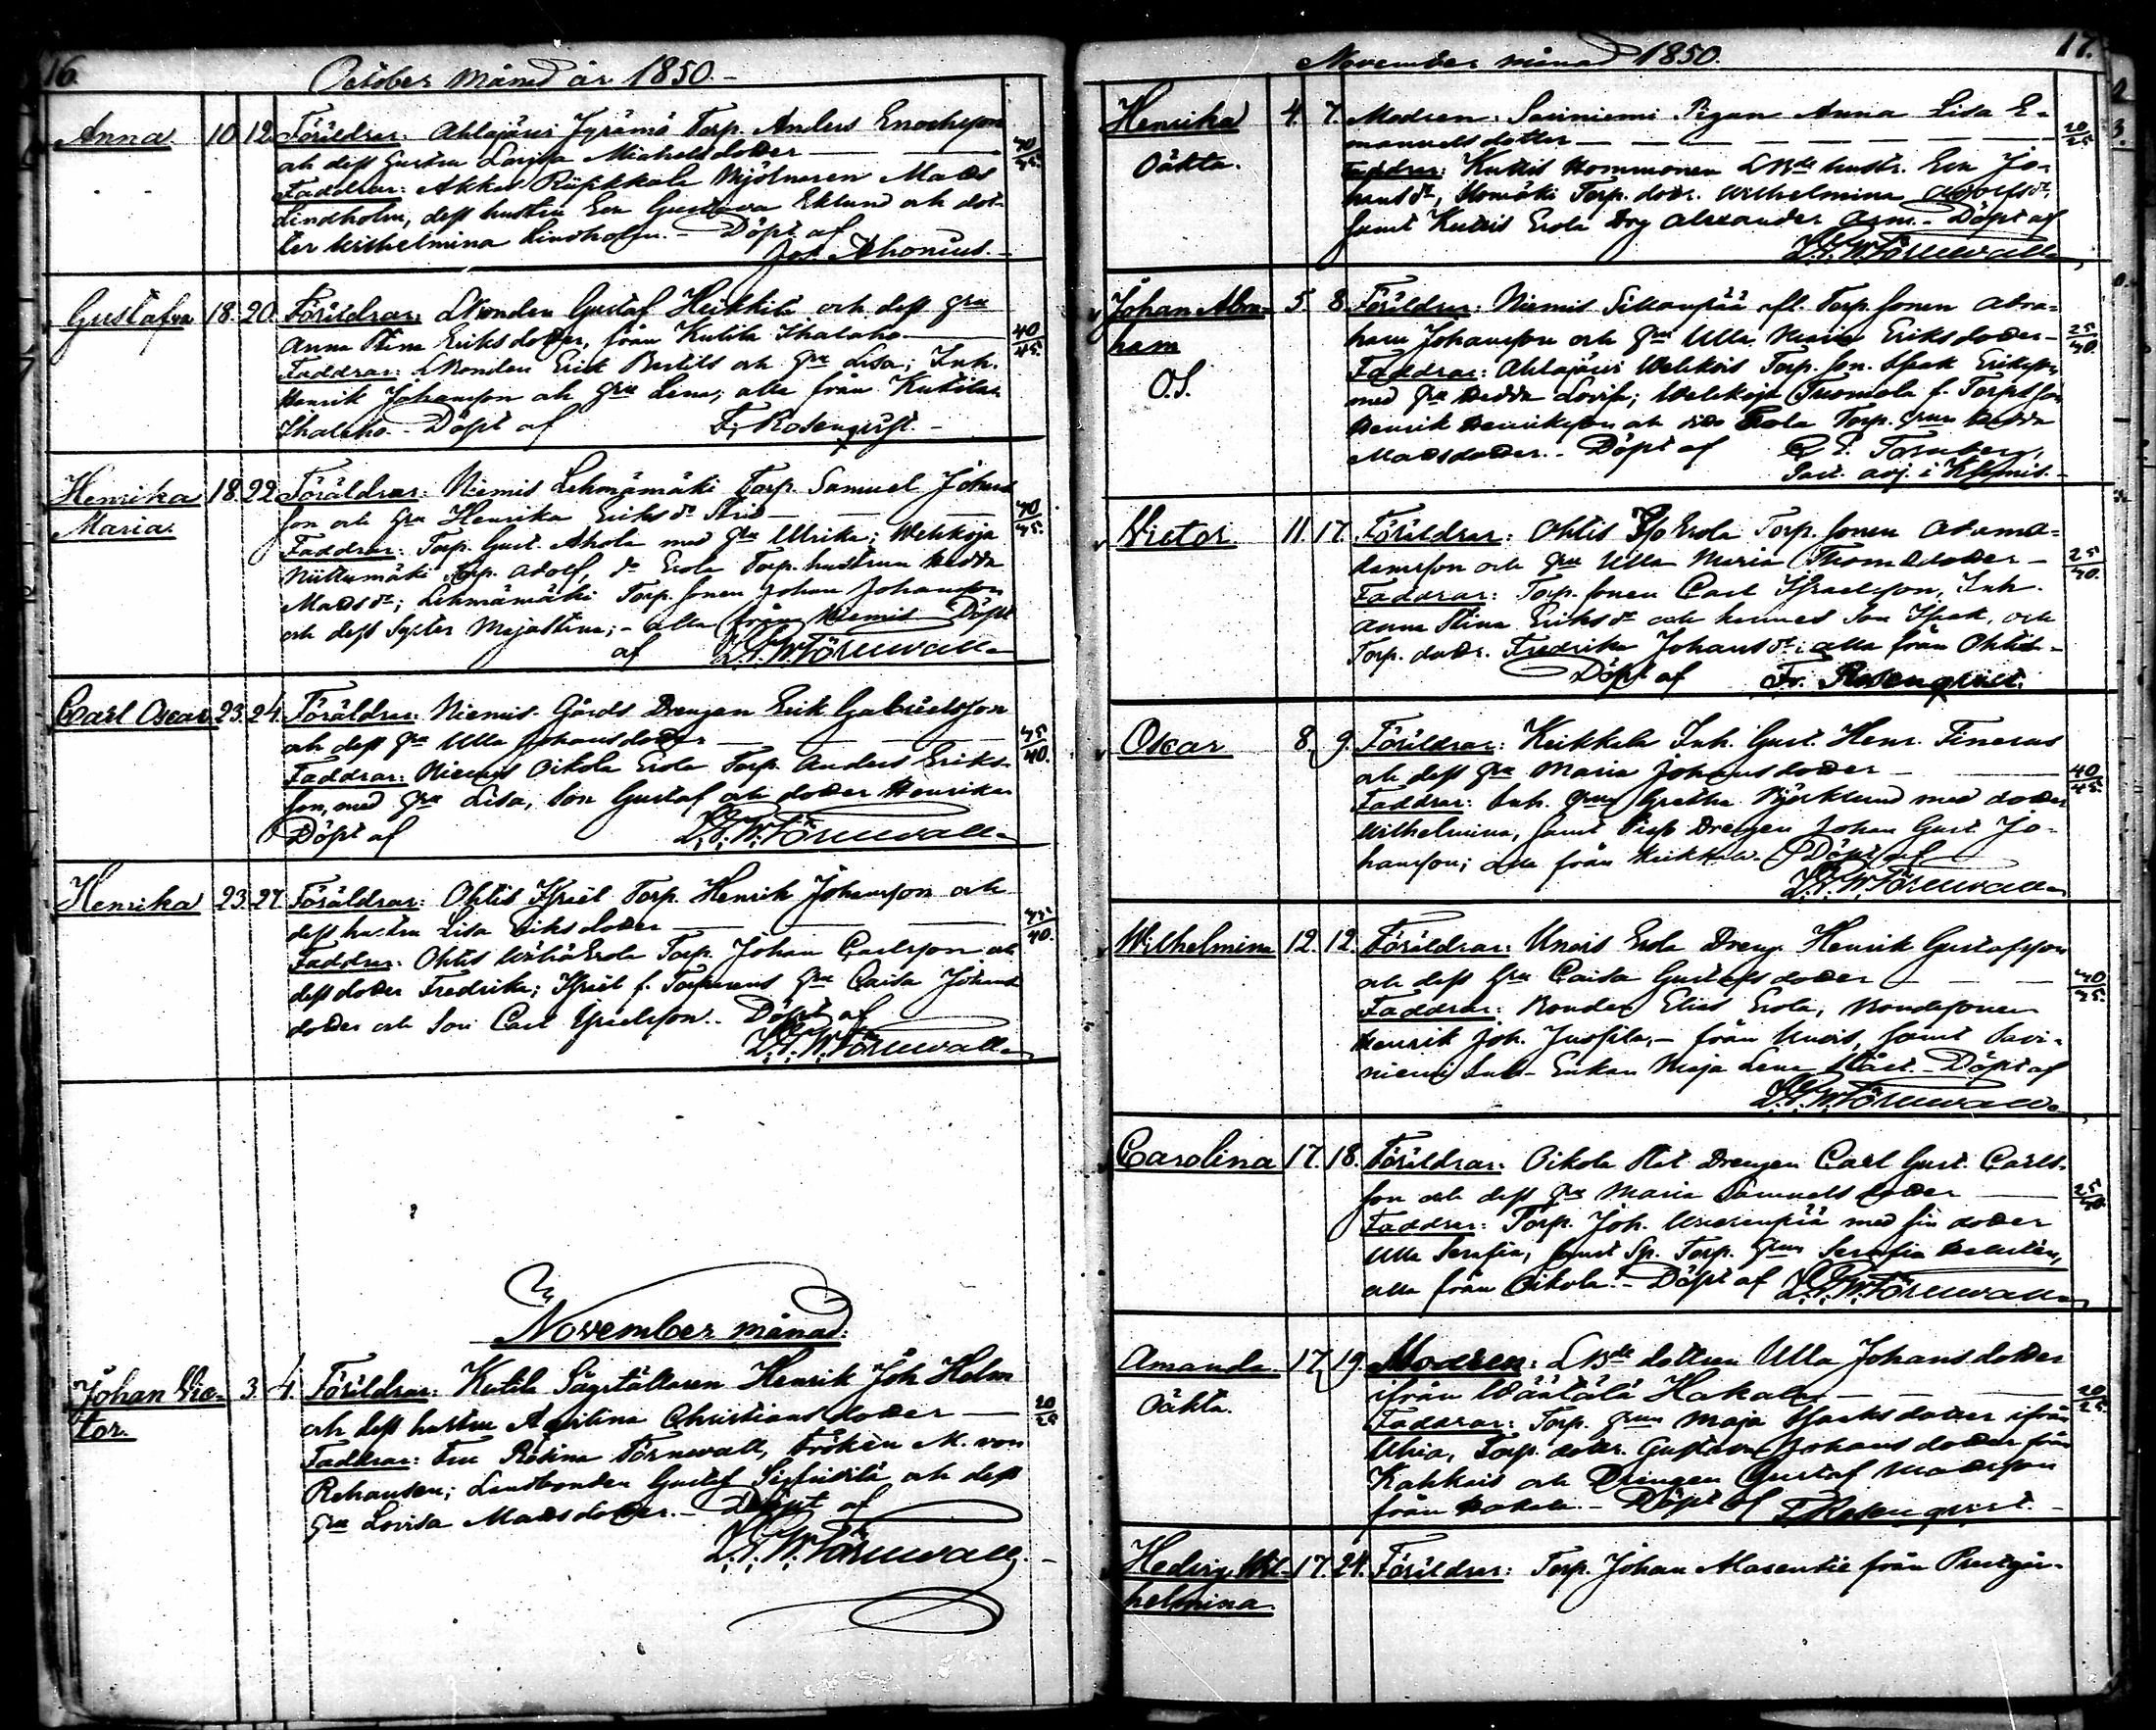 16.
October månad år 1850.-
Anna. 10. 12. Föräldrar: Ahlajärvi Jyrämä Torp. Anders Enochsson
och dess hustru Lovisa Michelsdotter — 40/45.
Faddrar: Akkas Mjölnaren Matts
Lindholm, dess hustru Eva Gustava Eklund och dot-
ter Wilhelmina Lindholm. - Döpt af
Joh. Ahonius.-
Gustafva 18. 20. Föräldrar: LBonden Gustaf Heikkilä och dess hru
Anna Stina Eriksdotter, från Kutila Ihalaho. — 40/45.
Faddrar: LBonden Erik Bertils och hru Lisa; Inh.
Henrik Johansson och hru Lena; alla från Kutila
Ihalaho.- Döpt af F. Rosenqvist.-
Henrika 18. 22. Föräldrar: Niemis Lehmämäki Torp. Samuel Johans
Maria. son och hru Henrika Eriksdr — 40/45.
Faddrar: Torp. Gust. Ahola med hru Ulrika; Wehkoja
Niittumäki Torp. Adolf, do Erola Torp. hustrun Hedda
Mattsdr; Lehmämäki Torp. sonen Johan Johansson
och dess syster Majastina; - alla från Niemis Döpt
af L.G.W. Törnewall
Carl Oscar 23. 24. Föräldrar: Niemis Gårds Drengen Erik Gabrielsson
och dess hru Ulla Johansdotter — 35/40.
Faddrar: Niemis Oikola Erola Torp. Anders Eriks-
son, med hru Lisa, Son Gustaf och dotter Henrika
Döpt af L.G.W. Törnewall
Henrika 23. 27. Föräldrar: Ohtis Torp. Henrik Johansson och
dess hustru Lisa Eriksdotter — 35/40.
Faddrar: Ohtis Torp. Johan Carlsson och
dess dotter Fredrika; f. Torparens hru Caisa Johans
dotter och Son Carl Israelsson.. Döpt af
L.G.W. Törnewall
November månad:
Johan Vic- 3. 4. Föräldrar: Kutila Sågställaren Henrik Joh Holm
tor. och dess hustru Christiansdotter — 20/25
Faddrar: Fru Rosina Törnewall, Fröken M. von
Rehausen; Landbonden Gustaf och dess
hru Lovisa Mattsdotter.- Döpt af
L.G.W. Törnewall.
November månad 1850. 17.
Henrika 4. 7. Modren: Saviniemi Pigan Anna Lisa E-
Oäkta. manuelsdotter — 20/25
Faddrar: Kutis LBde hustr. Eva Jo-
hansdr, Torp. dottr. Wilhelmina Adolfsdr,
samt Kutis Erola Drg Alexander - Döpt af
L.G.W. Törnewall
Johan Abra- 5. 8. Föräldrar: Niemis Torp. sonen Abra-
ham ham Johansson och hru Ulla Maria Eriksdotter — 25/30.
O.S. Faddrar: Ahlajärvi Wehkois Torp. son. Isak Eriksson
med hru Hedda Lovisa; Wehkoja Tuomola f. Torp. son
Henrik Henriksson och dito Erola Torp. hrun Hedda
Mattsdotter.- Döpt af
Past. adj. i
Victor. 11. 17. Föräldrar: Ohtis Erola Torp. sonen Adam A-
damsson och hru Ulla Maria Thomsdotter — 25/30.
Faddrar: Torp. sonen Carl Israelsson, Inh.
Anna Stina Eriksdr och hennes Son Isak, och
Torp. dottr. Fredrika Johansdr; alla från Ohtis.-
Döpt af Fr. Rosenqvist.
Oscar 8. 9. Föräldrar: Keikkala Inh. Gust. Henr. Finerus
och dess hru Maria Johansdotter — 40/45.
Faddrar: Inh. hrun Gretha Björklund med dotter
Wilhelmina, samt Drengen Johan Gust. Jo-
hansson; alla från Keikkala. Döpt af
L.G.W. Törnewall
Wilhelmina 12. 12. Föräldrar: Erola Dreng Henrik Gustafsson
och dess hru Caisa Gustafsdotter — 30/35.
Faddrar: Bonden Elias Erola, Bondesonen
Henrik Joh. Jussila, - från samt Savi-
niemi Inh- Enkan Maja Lena - Döpt af
L.G.W. Törnewall
Carolina 17. 18. Föräldrar: Oikola Drengen Carl Gust. Carls-
son och dess hru Maria Samuelsdotter — 25/30.
Faddrar: Torp. Joh. med sin dotter
Ulla Serafia, samt Sp. Torp. hrun Serafia
alla från Oikola.- Döpt af L.G.W. Törnewall
Amanda. 17. 19. Modren: LBde dottren Ulla Johansdotter
Oäkta. ifrån Wäätälä Hakala — 20/25.
Faddrar: Torp. hrun Maja Isaksdotter ifrån
Torp. dottr. Gustava Johansdotter från
och Drengen Gustaf Mattsson
från Hakala.- Döpt af F. Rosenqvist.-
Hedvig Wil- 17. 24. Föräldrar: Torp. Johan Alasentie från Prestgår-
helmina.